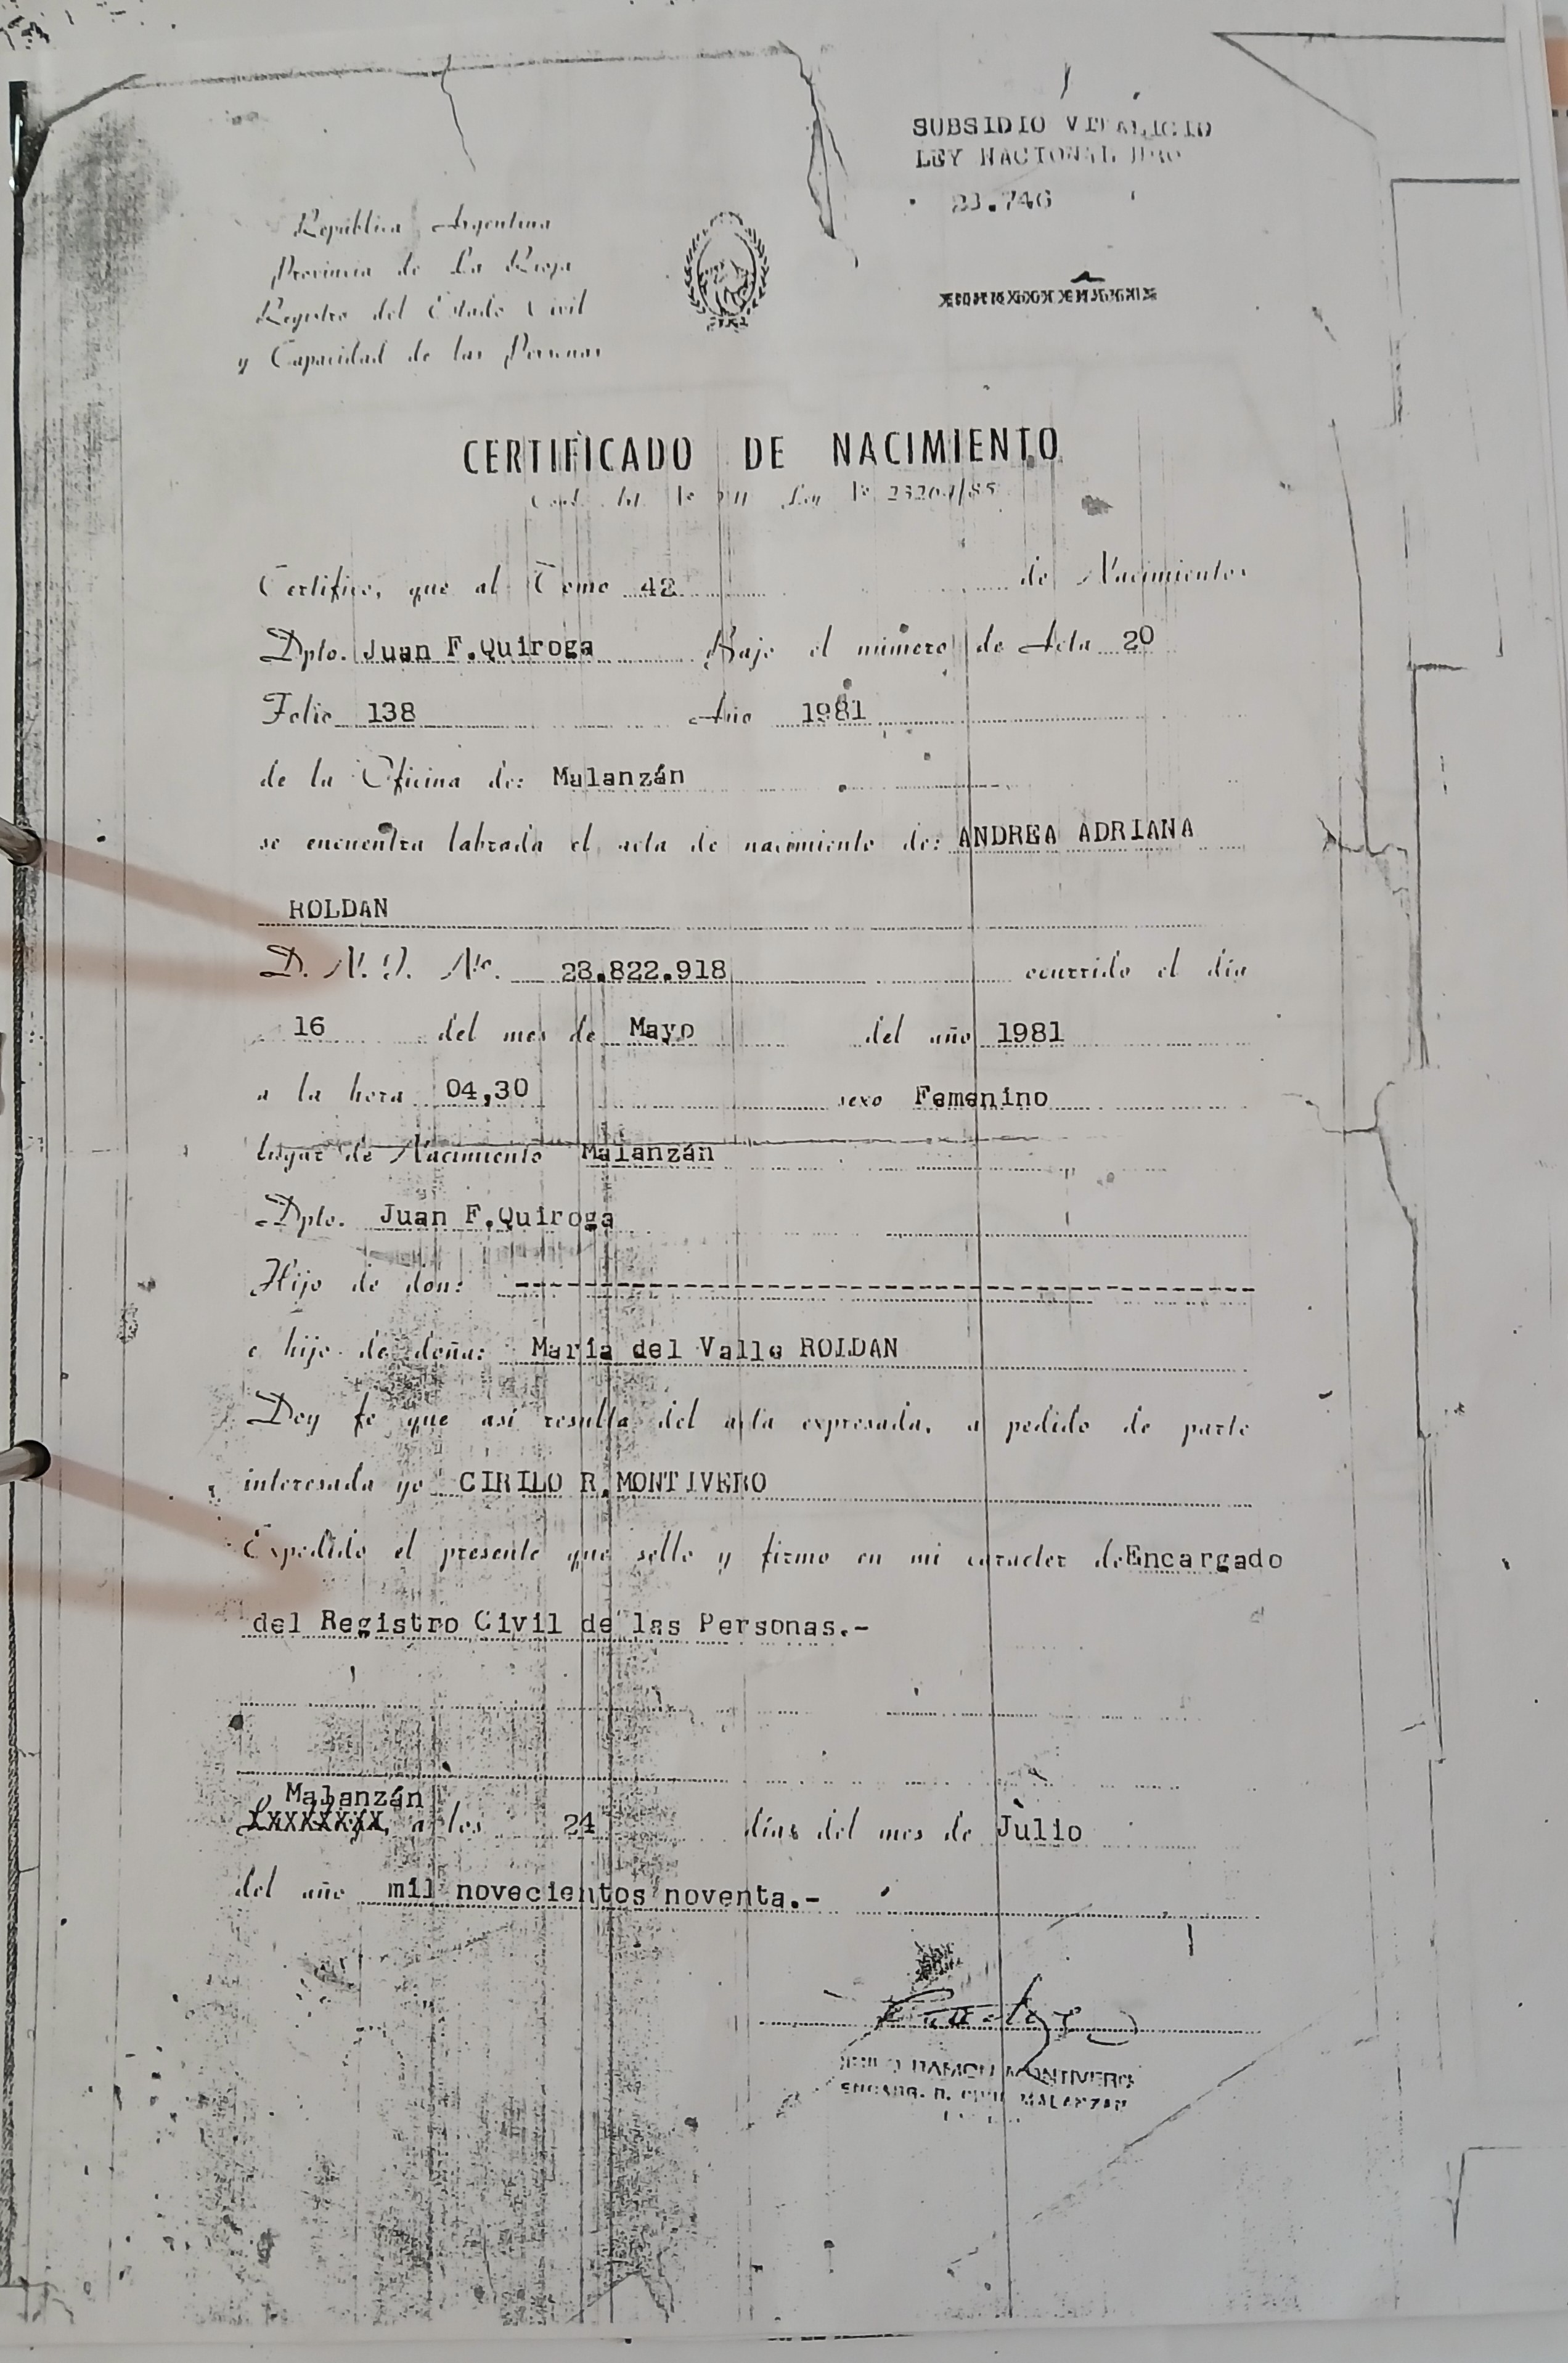 SUBSIDIO VITALICIO
LEY NACIONAL NRO
23.746
República Argentina
Provincia de La Rioja
Registro del Estado Civil
y Capacidad de las Personas
CERTIFICADO DE NACIMIENTO
Ley Nº 23204/85
Certifico, que al Tomo 42 de Nacimientos
Dpto. Juan F.Quiroga Bajo el número de Acta 20
Folio 138 Año 1981
de la Oficina de: Malanzán
se encuentra labrada el acta de nacimiento de: ANDREA ADRIANA
ROLDAN
D. N. I. Nº. 28.822.918 ocurrido el día
16 del mes de Mayo del año 1981
a la hora 04,30 sexo Femenino
lugar de Nacimiento Malanzán
Dpto. Juan F.Quiroga
Hijo de don: --------------------------------
e hijo de doña: María del Valle ROLDAN
Doy fe que así resulta del acta expresada, a pedido de parte
interesada yo CIRILO R.MONTIVERO
Expedido el presente que sello y firmo en mi caracter de Encargado
del Registro Civil de las Personas.-
Malanzán
a los 24 días del mes de Julio
del año mil novecientos noventa.-
RAMON MONTIVERO
ENCARG. R. CIVIL MALANZAN